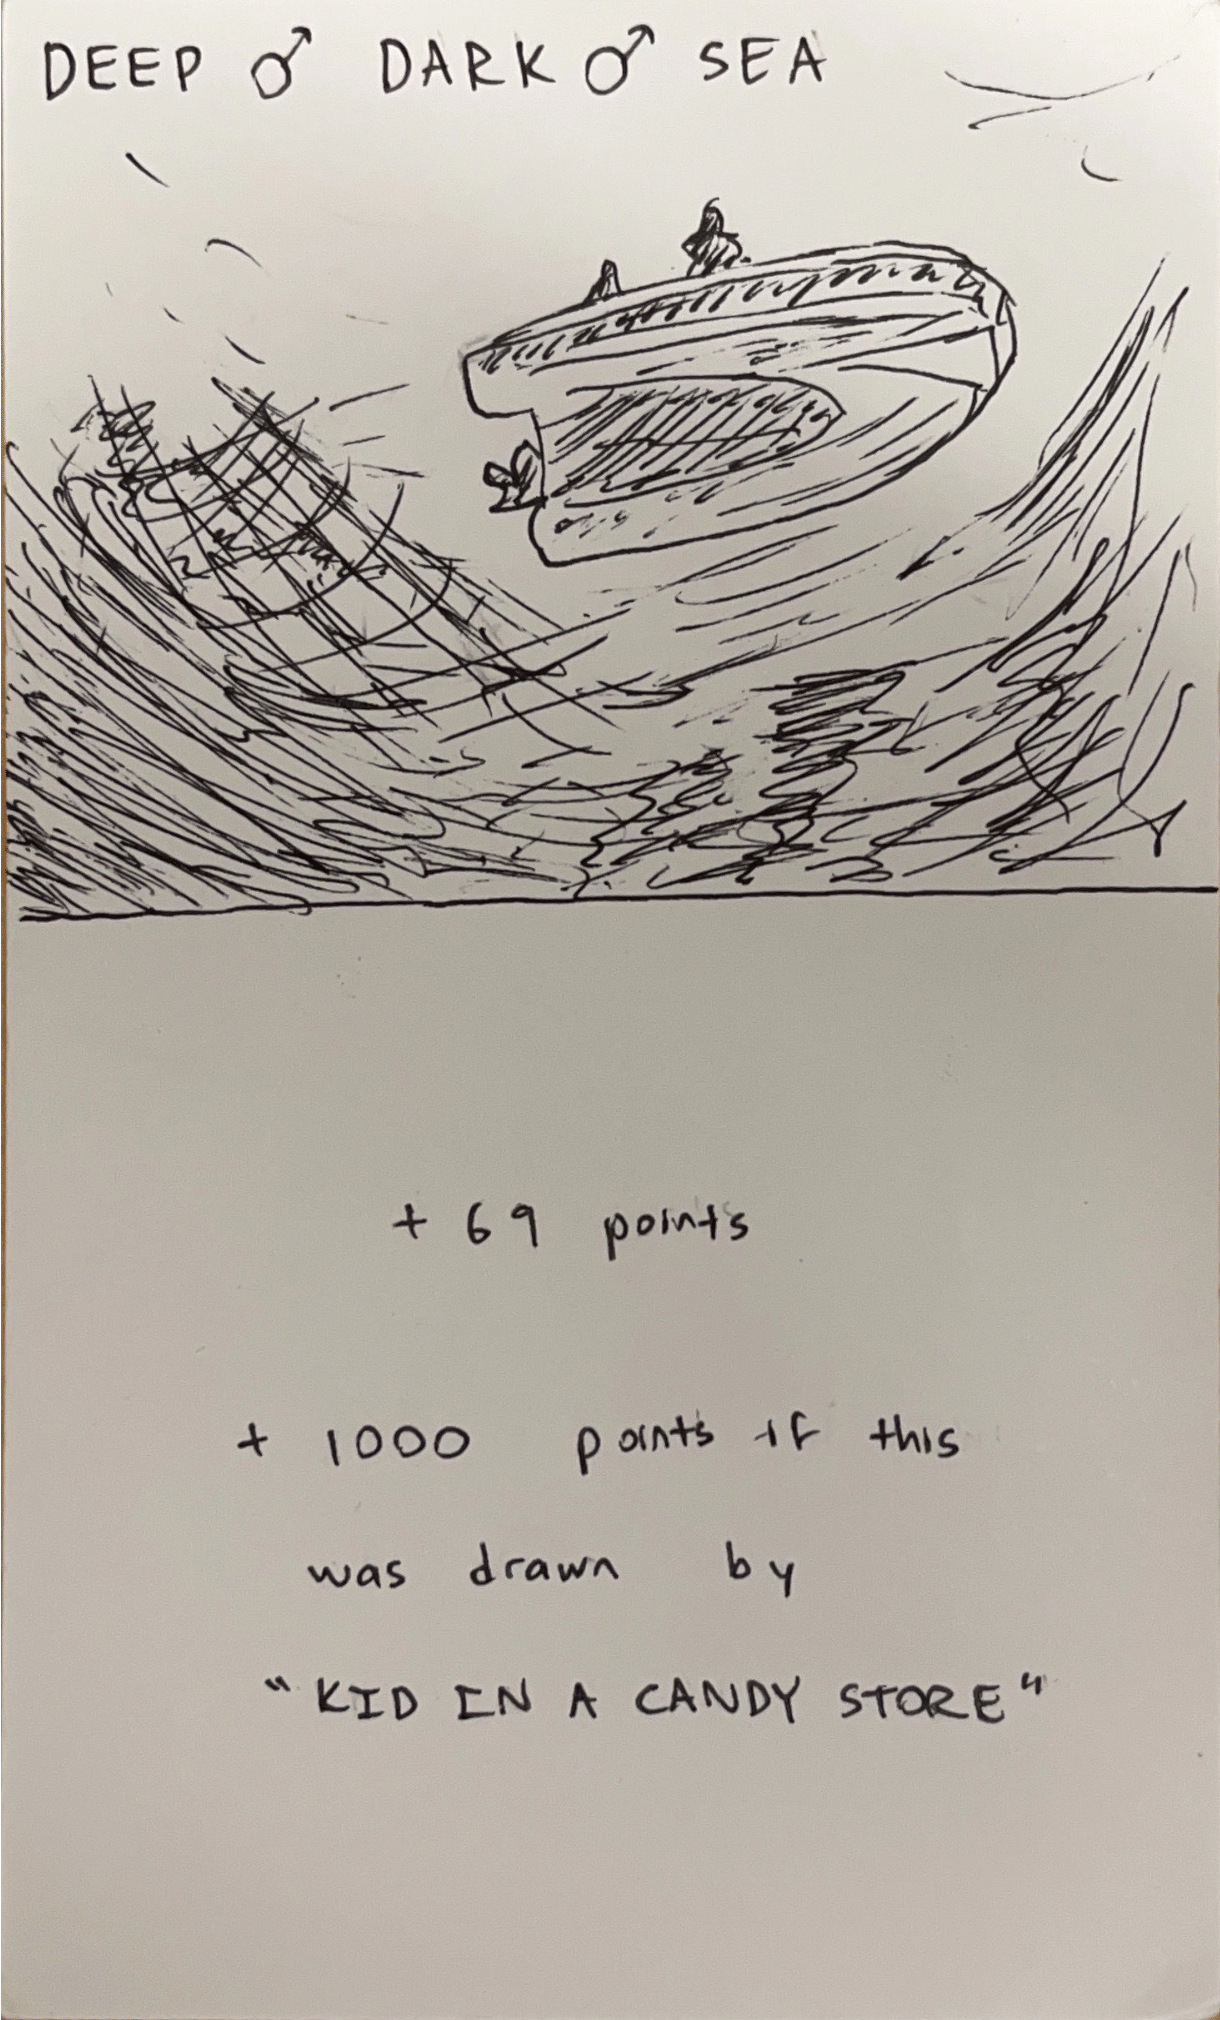 DEEP ♂ DARK ♂ SEA
+ 69 points
+ 1000 points if this
was drawn by
"KID IN A CANDY STORE"